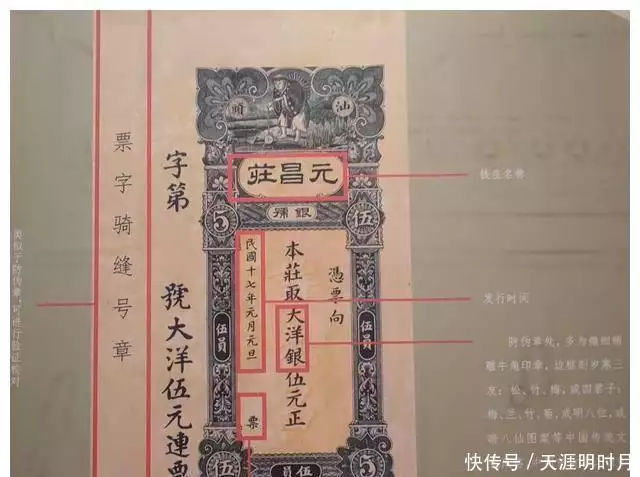 汕頭
元昌莊
銀舖
5
伍
憑票向
本莊取大洋銀伍元正
民國十七年元月元旦
票
伍員
伍員
伍
伍員
5
字第 號大洋伍元連票
票字骑缝号章
类似于防伪章,可进行验证校对
钱庄名称
发行时间
防伪章戳,多为微细精
雕牛角印章,边框刻岁寒三
友:松、竹、梅,或四君子:
梅、兰、竹、菊,或明八仙,或
暗八仙图案等中国传统文
快传号/天涯明时月